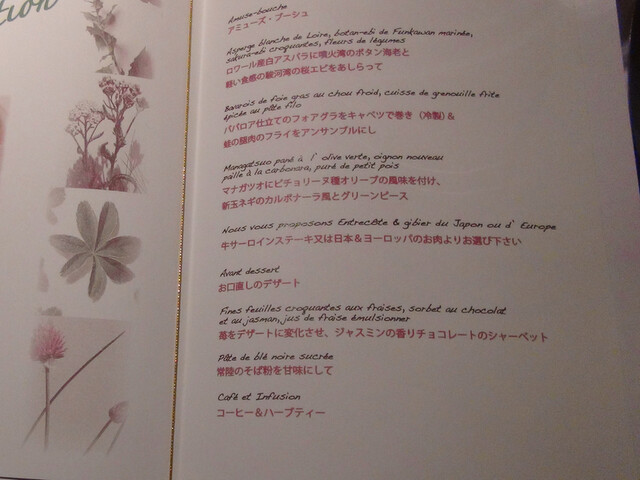 tion
Amuse-bouche
アミューズ・ブーシュ
Asperge blanche de Loire, botan-ebi de Funkawan marinée,
sakura-ebi croquantes, fleurs de légumes
ロワール産白アスパラに噴火湾のボタン海老と
軽い食感の駿河湾の桜エビをあしらって
Bavarois de foie gras au chou froid, cuisse de grenouille frite
épicée au pâte filo
ババロア仕立てのフォアグラをキャベツで巻き（冷製）&
蛙の腿肉のフライをアンサンブルにし
Managatsuo pané à l'olive verte, oignon nouveau
paillé à la carbonara, puré de petit pois
マナガツオにピチョリーヌ種オリーブの風味を付け、
新玉ネギのカルボナーラ風とグリーンピース
Nous vous proposons Entrecôte & gibier du Japon ou d'Europe
牛サーロインステーキ又は日本&ヨーロッパのお肉よりお選び下さい
Avant dessert
お口直しのデザート
Fines feuilles croquantes aux fraises, sorbet au chocolat
et au jasman, jus de fraise émulsionner
苺をデザートに変化させ、ジャスミンの香りチョコレートのシャーベット
Pâte de blé noire sucrée
常陸のそば粉を甘味にして
Café et Infusion
コーヒー&ハーブティー